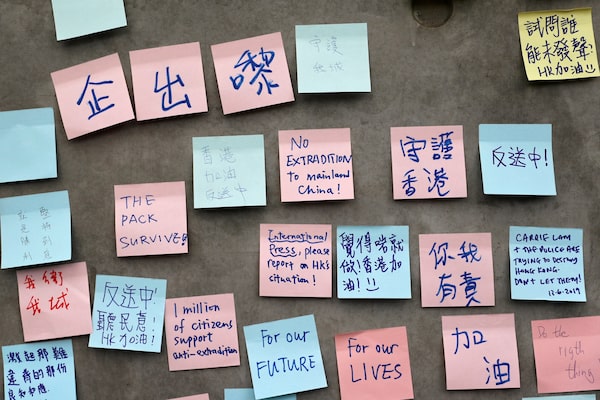 企
出
嚟
守護
我城
試問誰
能未發聲
HK加油!!
香港
加油
反送中
No
EXTRADITION
to mainland
China!
守護
香港
反送中!
THE
PACK
SURVIVE!
International
Press, please
report on HK's
situation!
覺得啱就
做!香港加
油!
你我
有責
CARRIE LAM
+ THE POLICE ARE
TRYING TO DESTROY
HONG KONG.
DON'T LET THEM!
12-6-2019
我城
反送中!
聽民意!
HK加油!
1 million
of citizens
support
anti-extradition
For our
FUTURE
For our
LIVES
加
油
So the
119th
thing
激起那難